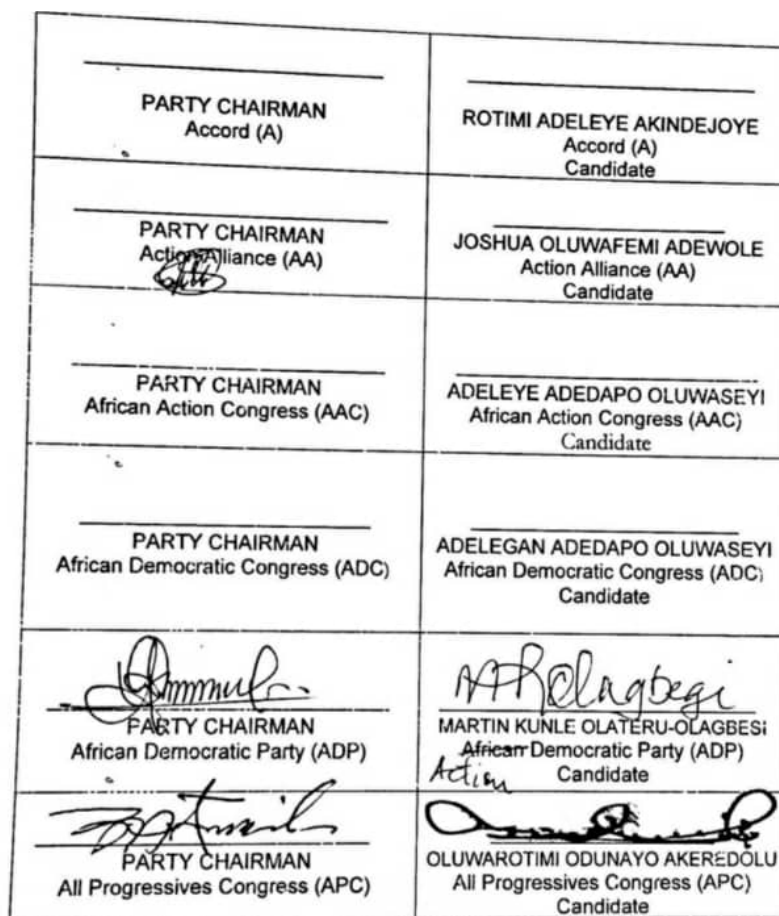 PARTY CHAIRMAN
Accord (A)
ROTIMI ADELEYE AKINDEJOYE
Accord (A)
Candidate
PARTY CHAIRMAN
Action Alliance (AA)
JOSHUA OLUWAFEMI ADEWOLE
Action Alliance (AA)
Candidate
PARTY CHAIRMAN
African Action Congress (AAC)
ADELEYE ADEDAPO OLUWASEYI
African Action Congress (AAC)
Candidate
PARTY CHAIRMAN
African Democratic Congress (ADC)
ADELEGAN ADEDAPO OLUWASEYI
African Democratic Congress (ADC)
Candidate
PARTY CHAIRMAN
African Democratic Party (ADP)
Olagbegi
MARTIN KUNLE OLATERU-OLAGBESI
African Democratic Party (ADP)
Action Candidate
PARTY CHAIRMAN
All Progressives Congress (APC)
OLUWAROTIMI ODUNAYO AKEREDOLU
All Progressives Congress (APC)
Candidate